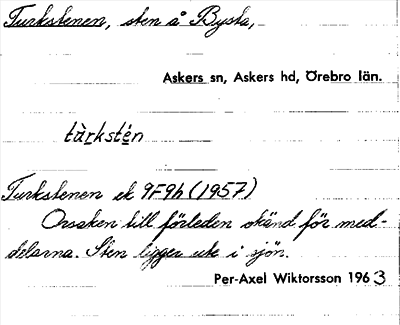 Turkstenen, sten å Bysta,
Askers sn, Askers hd, Örebro län.
tùrkstén
Turkstenen ek 9F9h (1957)
Orsaken till förleden okänd för med-
delarna. Sten ligger ute i sjön.
Per-Axel Wiktorsson 1963